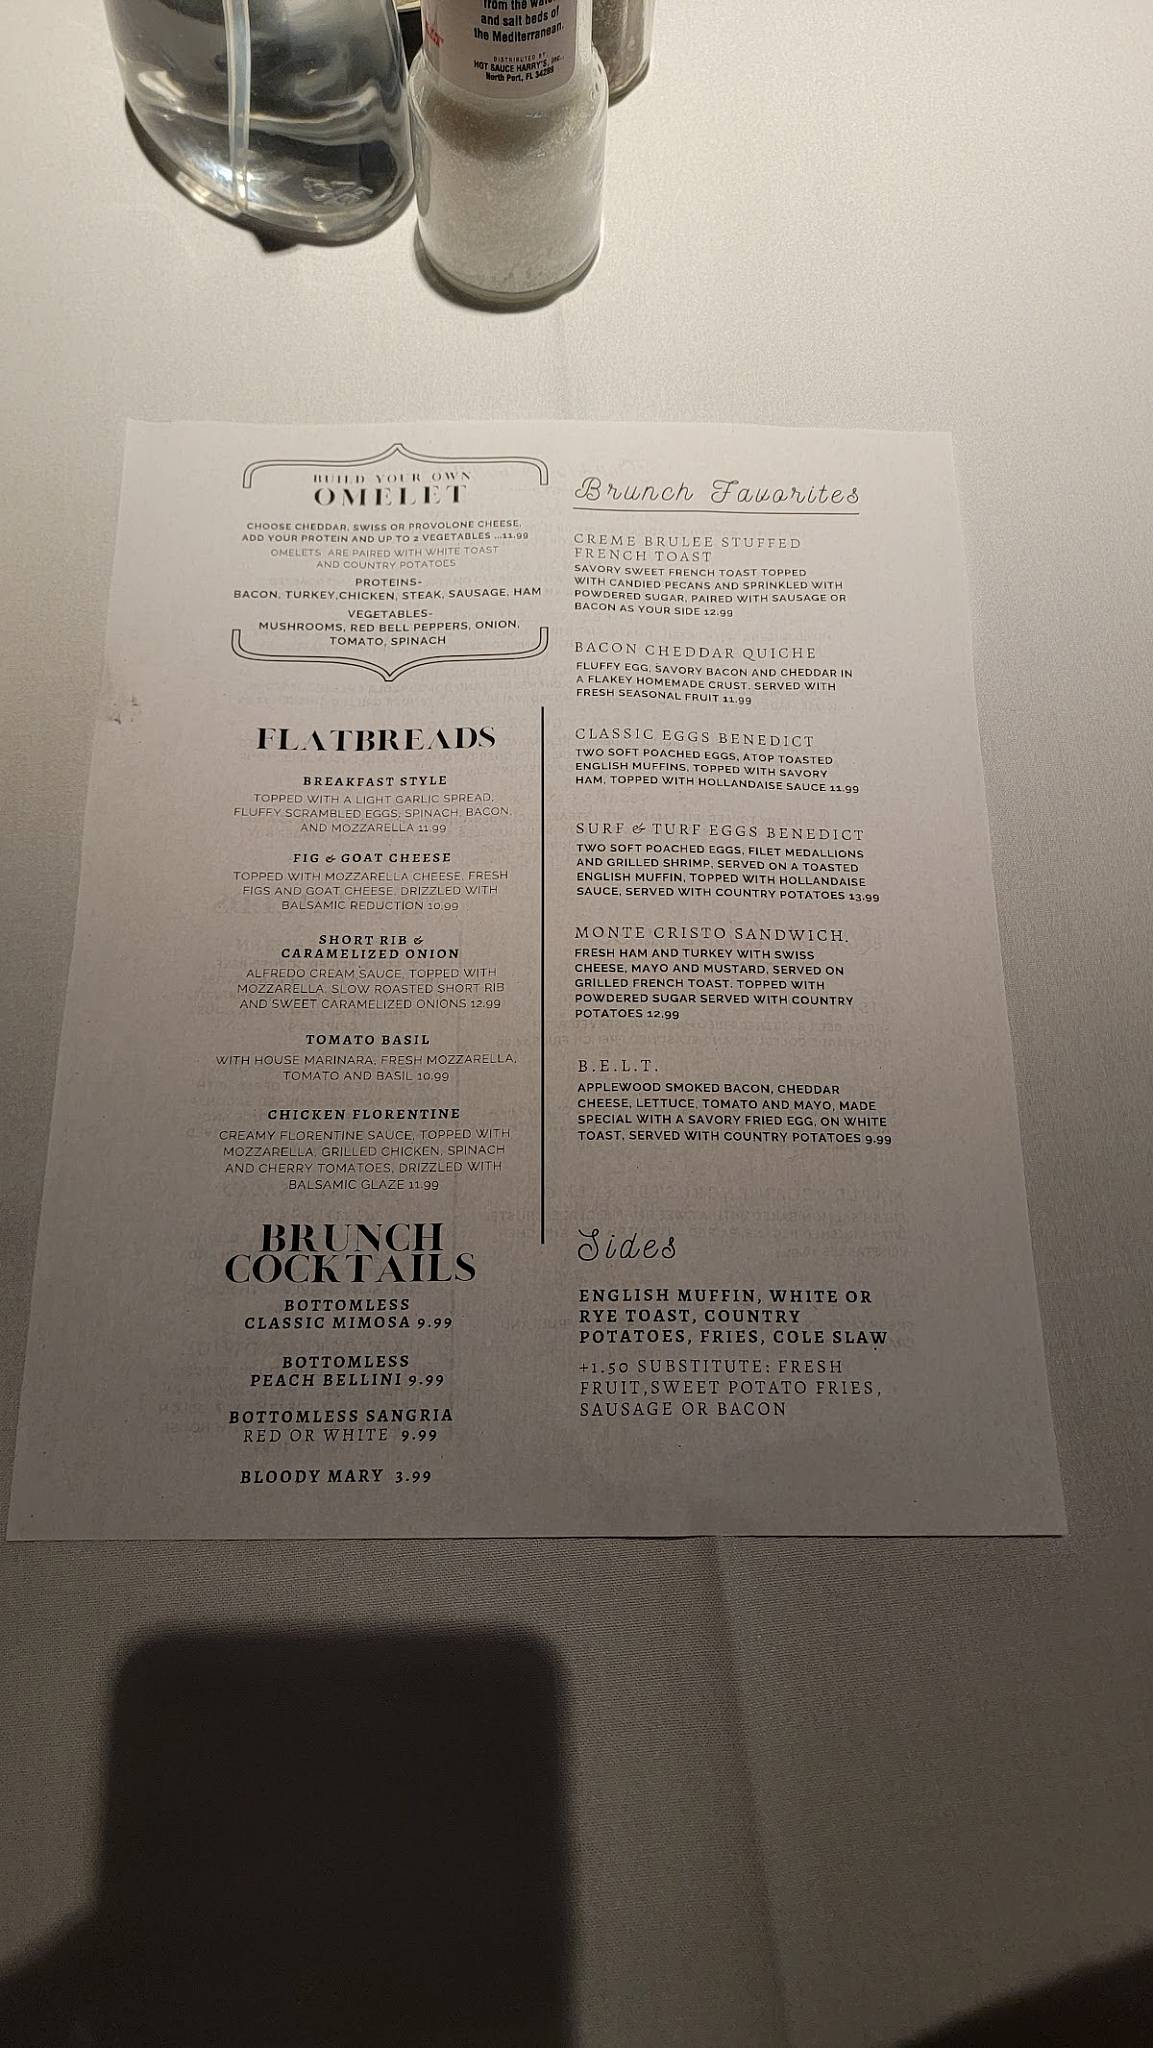 from the
and salt beds of
the Mediterranean.
DISTRIBUTED BY:
HOT SAUCE HARRY'S, INC.,
North Port, FL 34289
BUILD YOUR OWN
OMELET
CHOOSE CHEDDAR, SWISS OR PROVOLONE CHEESE,
ADD YOUR PROTEIN AND UP TO 2 VEGETABLES ...11.99
OMELETS ARE PAIRED WITH WHITE TOAST
AND COUNTRY POTATOES
PROTEINS-
BACON, TURKEY,CHICKEN, STEAK, SAUSAGE, HAM
VEGETABLES-
MUSHROOMS, RED BELL PEPPERS, ONION,
TOMATO, SPINACH
FLATBREADS
BREAKFAST STYLE
TOPPED WITH A LIGHT GARLIC SPREAD,
FLUFFY SCRAMBLED EGGS, SPINACH, BACON,
AND MOZZARELLA 11.99
FIG & GOAT CHEESE
TOPPED WITH MOZZARELLA CHEESE, FRESH
FIGS AND GOAT CHEESE, DRIZZLED WITH
BALSAMIC REDUCTION 10.99
SHORT RIB &
CARAMELIZED ONION
ALFREDO CREAM SAUCE, TOPPED WITH
MOZZARELLA, SLOW ROASTED SHORT RIB
AND SWEET CARAMELIZED ONIONS 12.99
TOMATO BASIL
WITH HOUSE MARINARA, FRESH MOZZARELLA,
TOMATO AND BASIL 10.99
CHICKEN FLORENTINE
CREAMY FLORENTINE SAUCE, TOPPED WITH
MOZZARELLA, GRILLED CHICKEN, SPINACH
AND CHERRY TOMATOES, DRIZZLED WITH
BALSAMIC GLAZE 11.99
BRUNCH
COCKTAILS
BOTTOMLESS
CLASSIC MIMOSA 9.99
BOTTOMLESS
PEACH BELLINI 9.99
BOTTOMLESS SANGRIA
RED OR WHITE 9.99
BLOODY MARY 3.99
Brunch Favorites
CREME BRULEE STUFFED
FRENCH TOAST
SAVORY SWEET FRENCH TOAST TOPPED
WITH CANDIED PECANS AND SPRINKLED WITH
POWDERED SUGAR, PAIRED WITH SAUSAGE OR
BACON AS YOUR SIDE 12.99
BACON CHEDDAR QUICHE
FLUFFY EGG, SAVORY BACON AND CHEDDAR IN
A FLAKEY HOMEMADE CRUST. SERVED WITH
FRESH SEASONAL FRUIT 11.99
CLASSIC EGGS BENEDICT
TWO SOFT POACHED EGGS, ATOP TOASTED
ENGLISH MUFFINS, TOPPED WITH SAVORY
HAM, TOPPED WITH HOLLANDAISE SAUCE 11.99
SURF & TURF EGGS BENEDICT
TWO SOFT POACHED EGGS, FILET MEDALLIONS
AND GRILLED SHRIMP, SERVED ON A TOASTED
ENGLISH MUFFIN, TOPPED WITH HOLLANDAISE
SAUCE, SERVED WITH COUNTRY POTATOES 13.99
MONTE CRISTO SANDWICH.
FRESH HAM AND TURKEY WITH SWISS
CHEESE, MAYO AND MUSTARD, SERVED ON
GRILLED FRENCH TOAST. TOPPED WITH
POWDERED SUGAR SERVED WITH COUNTRY
POTATOES 12.99
B.E.L.T.
APPLEWOOD SMOKED BACON, CHEDDAR
CHEESE, LETTUCE, TOMATO AND MAYO, MADE
SPECIAL WITH A SAVORY FRIED EGG, ON WHITE
TOAST, SERVED WITH COUNTRY POTATOES 9.99
Sides
ENGLISH MUFFIN, WHITE OR
RYE TOAST, COUNTRY
POTATOES, FRIES, COLE SLAW
+1.50 SUBSTITUTE: FRESH
FRUIT,SWEET POTATO FRIES,
SAUSAGE OR BACON